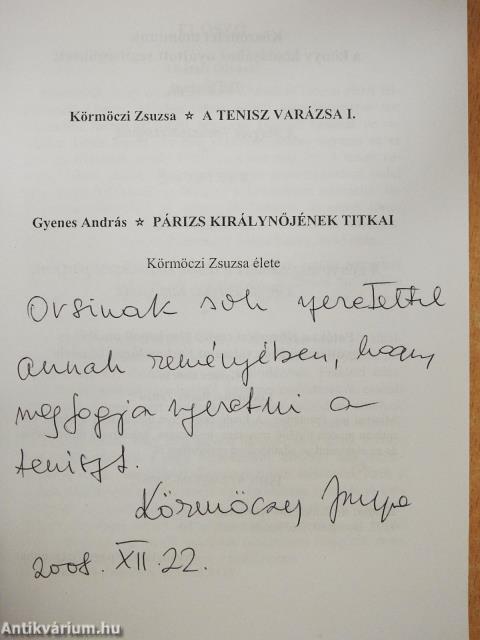 Körmöczi Zsuzsa ☆ A TENISZ VARÁZSA I.
Gyenes András ☆ PÁRIZS KIRÁLYNŐJÉNEK TITKAI
Körmöczi Zsuzsa élete
Orsinak sok szeretettel
annak reményében, hogy
megfogja szeretni a
teniszt.
Körmöczy Zsuzsa
2005. XII. 22.
Antikvárium.hu